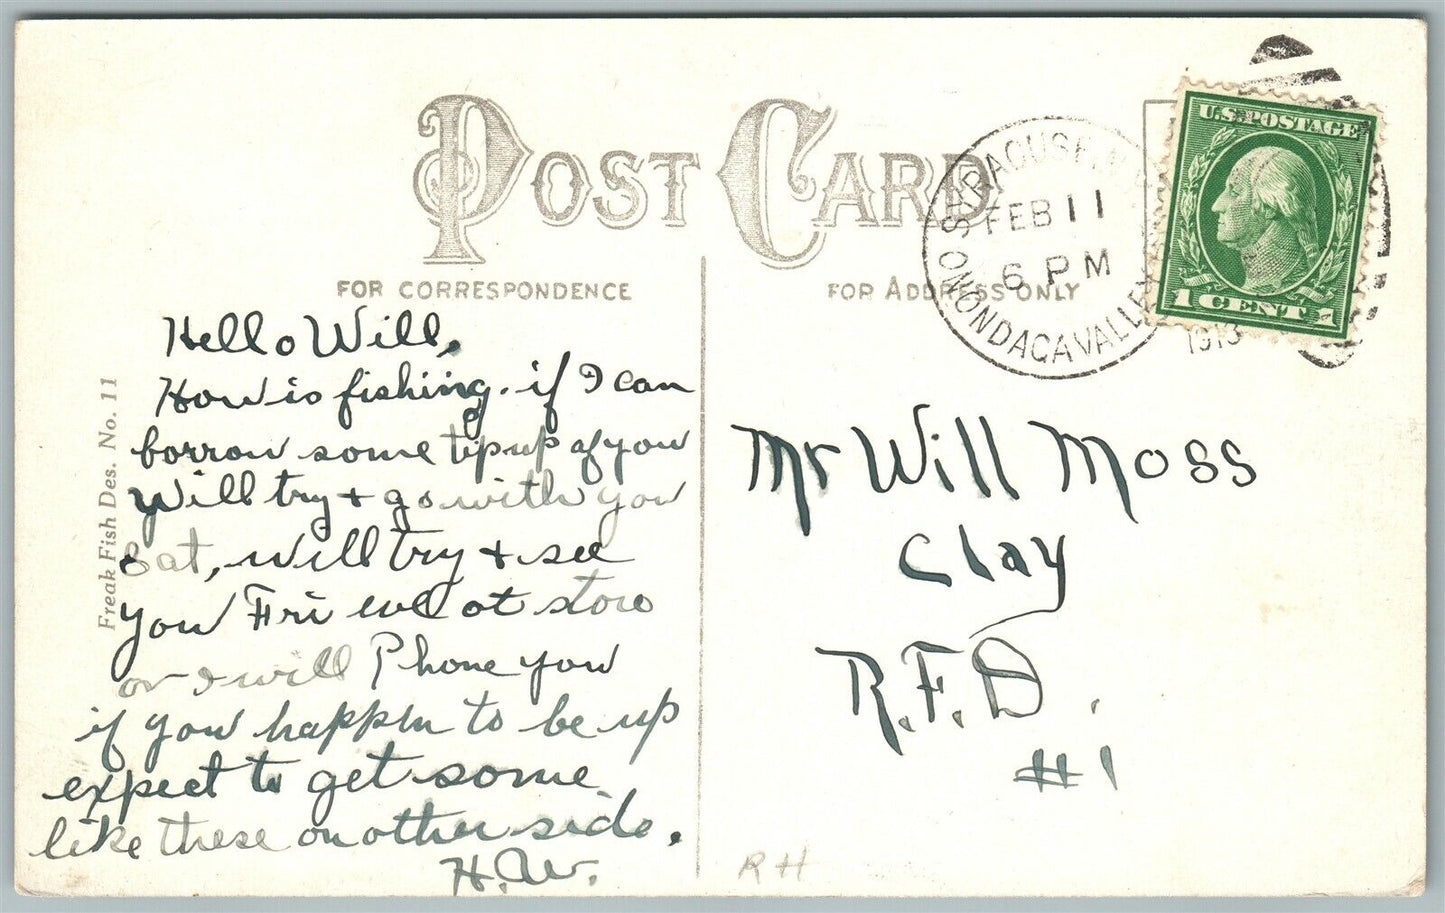 POST CARD
FOR CORRESPONDENCE
FOR ADDRESS ONLY
SYRACUSE, N.
FEB 11
6 PM
1913
ONONDAGA VALLEY
U.S. POSTAGE
1 CENT 1
Freak Fish Des. No. 11
Hello Will,
How is fishing. if I can
borrow some tipup of you
will try + go with you
Sat, will try + see
you Fri eve at store
or I will Phone you
if you happen to be up
expect to get some
like these on other side.
H.W.
Mr Will Moss
Clay
R.F.D.
#1
RH